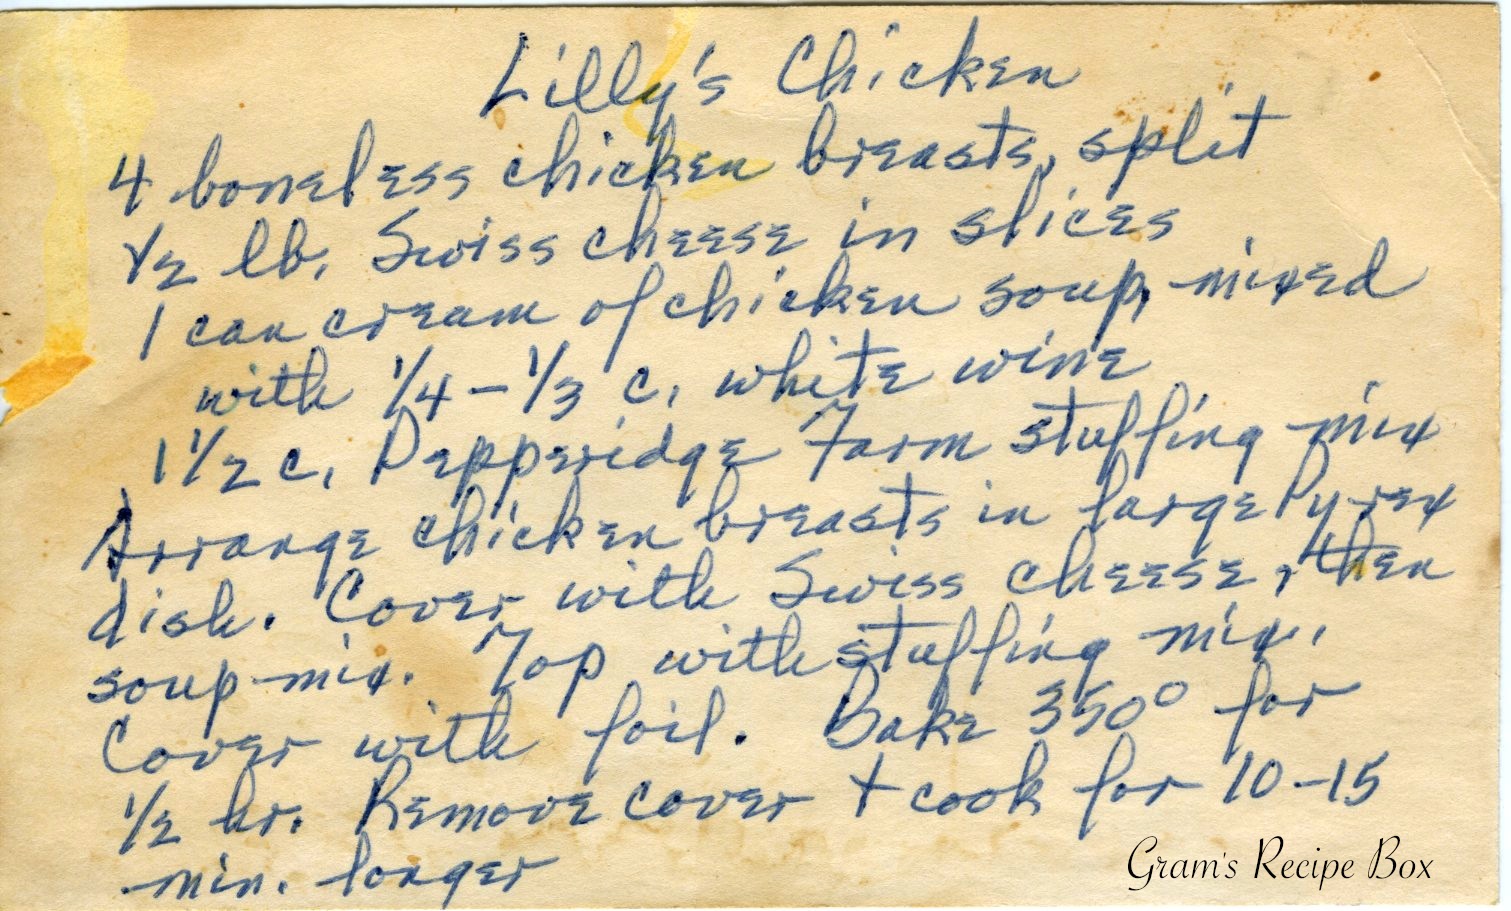 Lilly's Chicken
4 boneless chicken breasts, split
1/2 lb. Swiss cheese in slices
1 can cream of chicken soup, mixed
with 1/4 - 1/3 c. white wine
1 1/2 c. Pepperidge Farm stuffing mix
Arrange chicken breasts in large Pyrex
dish. Cover with Swiss cheese, then
soup mix. Top with stuffing mix.
Cover with foil. Bake 350° for
1/2 hr. Remove cover + cook for 10-15
min. longer
Gram's Recipe Box